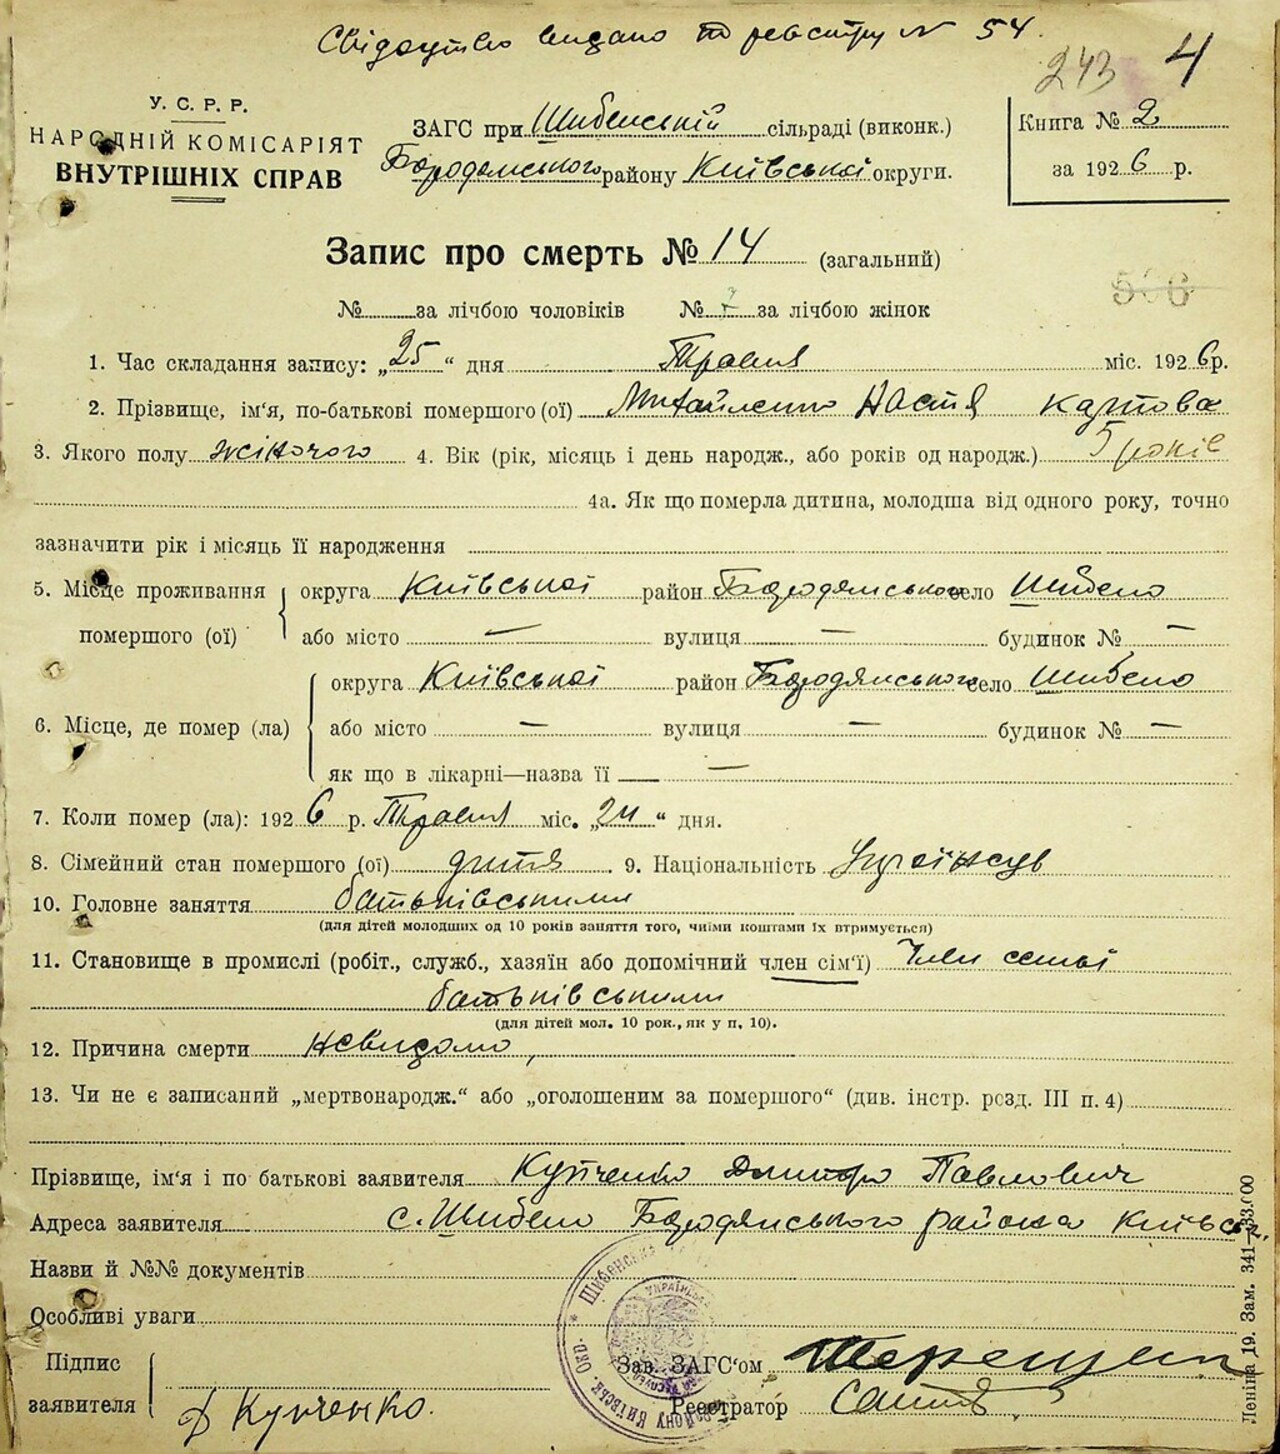 Свідоцтво видано по реєстру № 54.
243 4
У. С. Р. Р.
НАРОДНІЙ КОМІСАРІЯТ
ВНУТРІШНІХ СПРАВ
ЗАГС при Шибенській сільраді (виконк.)
Бородянського району Київської округи.
Книга № 2
за 1926 р.
Запис про смерть № 14 (загальний)
506
№ за лічбою чоловіків № 7 за лічбою жінок
1. Час складання запису: „25“ дня Травня міс. 1926 р.
2. Прізвище, ім‘я, по-батькові помершого (ої) Михайленко Настя
3. Якого полу жіночого 4. Вік (рік, місяць і день народж., або років од народж.) 5 років
4а. Як що померла дитина, молодша від одного року, точно
зазначити рік і місяць її народження
5. Місце проживання помершого (ої) округа Київської район Бородянського село Шибено
або місто — вулиця — будинок № —
6. Місце, де помер (ла) округа Київської район Бородянського село Шибено
або місто — вулиця — будинок № —
як що в лікарні—назва її —
7. Коли помер (ла): 1926 р. Травня міс. „24“ дня.
8. Сімейний стан помершого (ої) дитя 9. Національність
10. Головне заняття батьківськими
(для дітей молодших од 10 років заняття того, чиїми коштами їх втримується)
11. Становище в промислі (робіт., служб., хазяїн або допомічний член сім‘ї) Член семьї
батьківськими
(для дітей мол. 10 рок., як у п. 10).
12. Причина смерти невидомо,
13. Чи не є записаний „мертвонародж.“ або „оголошеним за помершого“ (див. інстр. розд. III п. 4)
Прізвище, ім‘я і по батькові заявителя Купченко Дмитро Павлович
Адреса заявителя с. Шибено Бородянського района Київськ.
Назви й №№ документів
Особливі уваги
Підпис
заявителя Д Купченко.
Зав. ЗАГС‘ом
Реєстратор
Шибенська
УКРАЇНСЬКА
району Київськ. Окр.
Леніна 19. Зам. 341—33.000